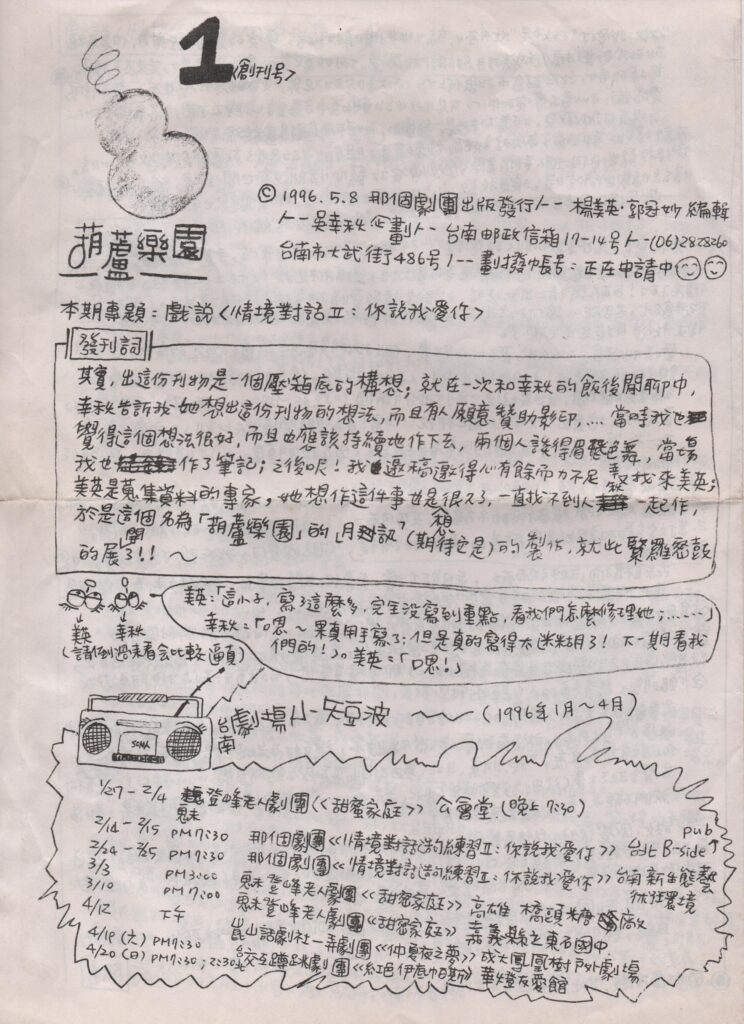 1
<創刊号>
葫蘆樂園
© 1996.5.8 那個劇團出版發行/－楊美英·郭冠妙編輯
/－吳幸秋企劃/－台南郵政信箱17-14号/－(06)2828260
台南市大武街486号/－－劃撥帳号：正在申請中
本期專題：戲說〈情境對話Ⅱ：你說我愛你〉
發刊詞
其實，出這份刊物是一個壓箱底的構想；就在一次和幸秋的飯後閒聊中，
幸秋告訴我她想出這份刊物的想法，而且有人願意贊助影印，.... 當時我也
覺得這個想法很好，而且也應該持續地作下去，兩個人談得眉飛色舞，當場
我也作了筆記；之後呢！我邀稿邀得心有餘而力不足，找來美英；
美英是蒐集資料的專家，她想作這件事也是很久了，一直找不到人一起作，
於是這個名為「葫蘆樂園」的「月訊」(期待它是)的製作，就此緊鑼密鼓
的展開了!! ～
美英：「這小子，寫了這麼多，完全沒寫到重點，看我們怎麼修理她；......」
幸秋：「嗯～果真用手寫了；但是真的寫得太迷糊了！下一期看我
們的！」。美英：「嗯！」
美英 幸秋
(請倒過來看會比較逼真)
SONA
台南劇場小短波 ～～ (1996年1月～4月)
1/27－2/4 魅登峰老人劇團《甜蜜家庭》公會堂(晚上7:30)
2/14－2/15 PM7:30 那個劇團《情境對話的練習Ⅱ：你說我愛你》台北B-side pub
2/24－2/25 PM7:30 那個劇團《情境對話的練習Ⅱ：你說我愛你》台南新生態藝術環境
3/3 PM3:00 魅登峰老人劇團《甜蜜家庭》高雄 橋頭糖廠
3/10 PM7:00 魅登峰老人劇團《甜蜜家庭》嘉義縣立東石國中
4/12 下午 崑山話劇社－弄劇團《仲夏夜之夢》成大鳳凰樹戶外劇場
4/19(六) PM7:30
4/20(日) PM7:30；2:30 劇團《紅色伊底帕斯》華燈友愛館